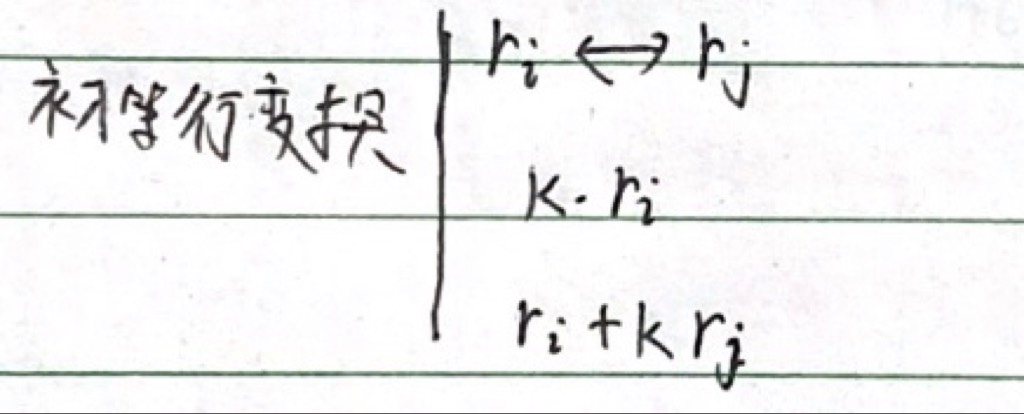 初等行变换
r_i ↔ r_j
k · r_i
r_i + k r_j